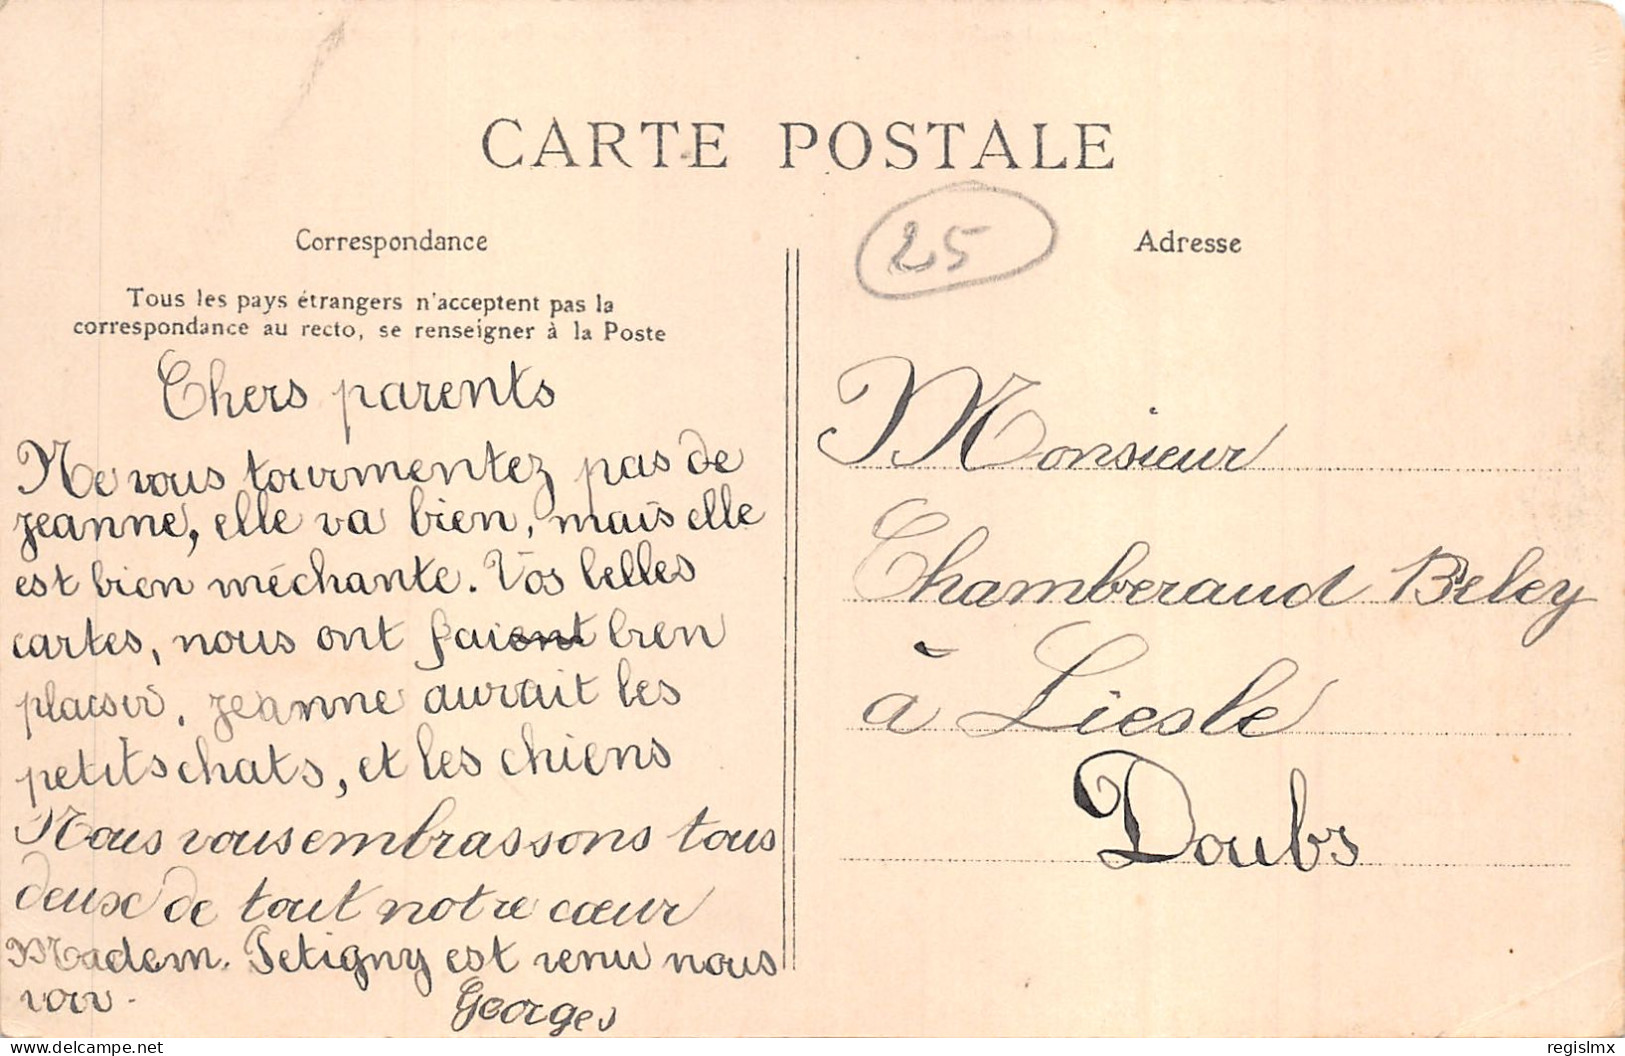 CARTE POSTALE
25
Correspondance
Tous les pays étrangers n'acceptent pas la
correspondance au recto, se renseigner à la Poste
Chers parents
Ne vous tourmentez pas de
jeanne, elle va bien, mais elle
est bien méchante. Vos belles
cartes, nous ont faient bien
plaisir, jeanne aurait les
petits chats, et les chiens
Nous vous embrassons tous
deux de tout notre cœur
Madem. Petigny est venu nous
voir.
Georges
Adresse
Monsieur
Chamberaud Beley
à Liesle
Doubs
delcampe.net
regislmx